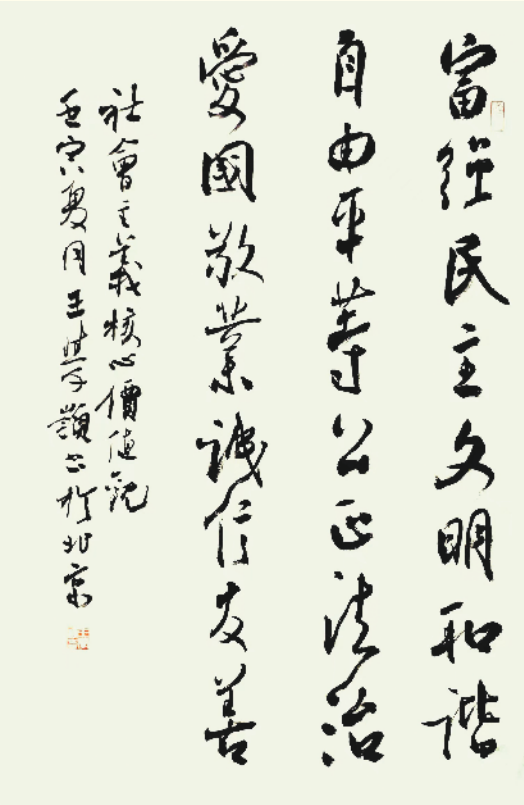 富強民主文明和諧
自由平等公正法治
愛國敬業誠信友善
社會主義核心價值觀
壬寅夏月王學嶺書於北京